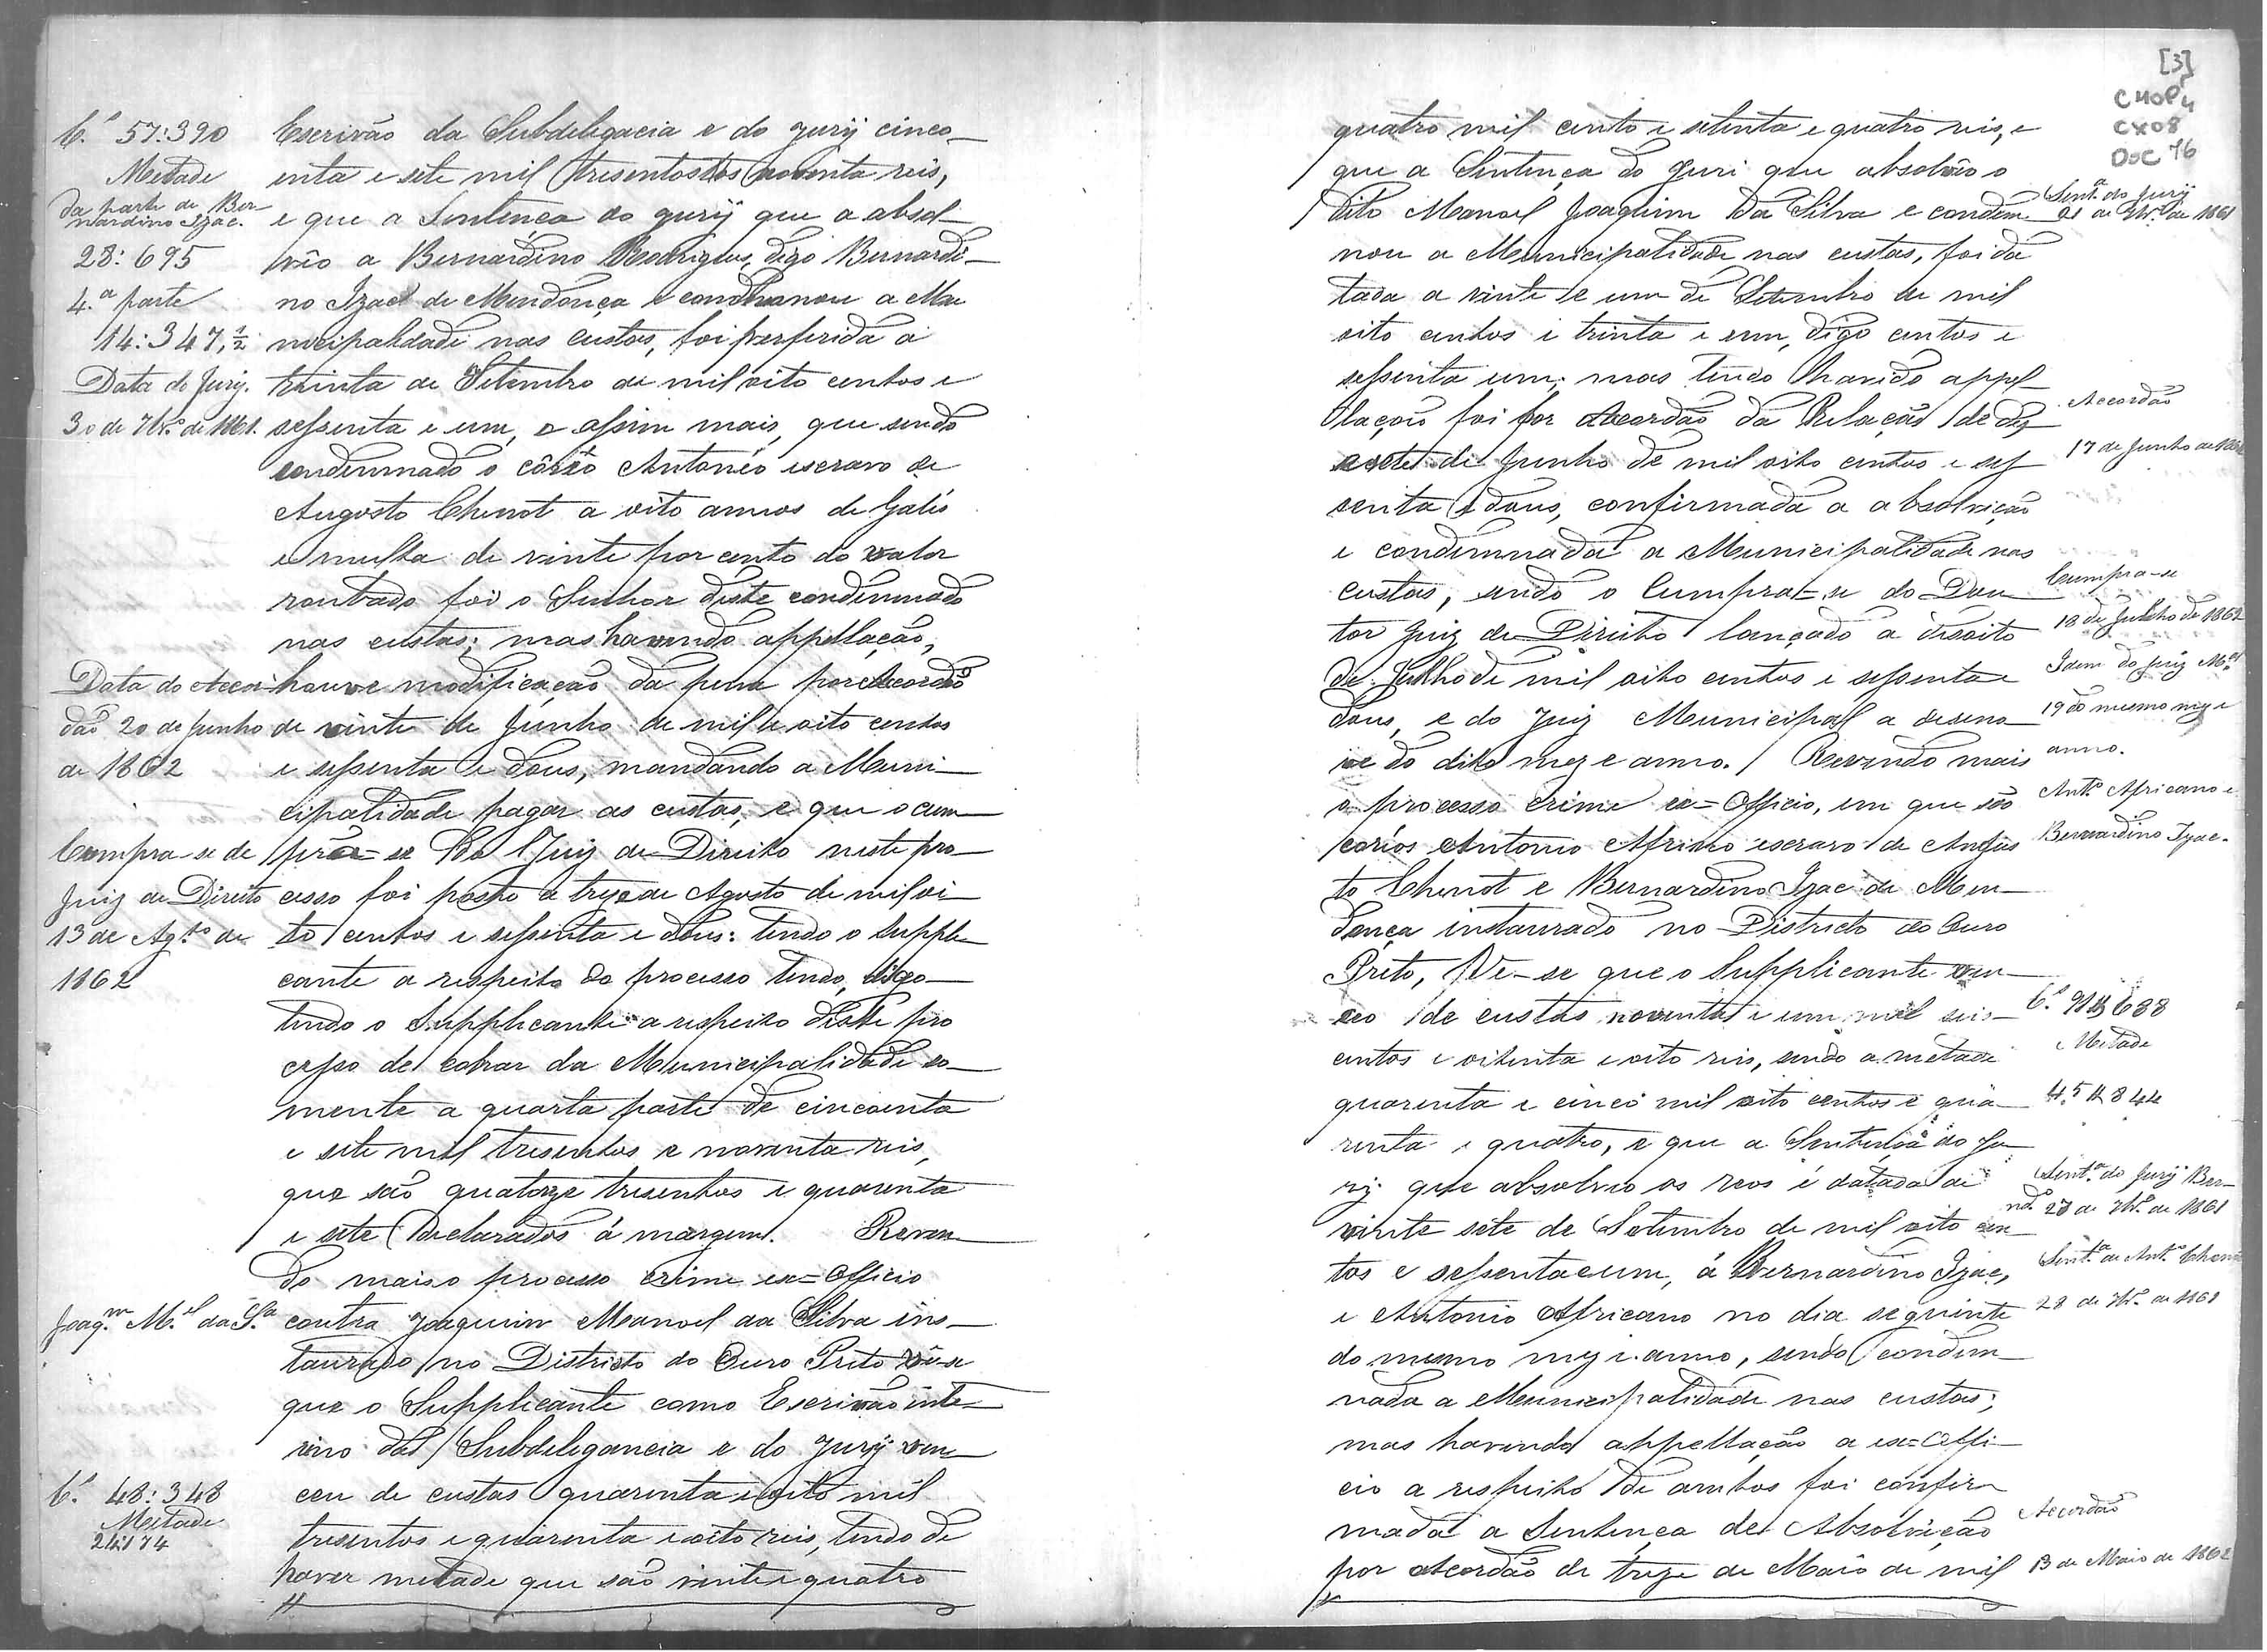 C.s 57:390
Metade
da parte de Ber-
nardino Izac.
28:695
4.a parte
14:347,1/2
Data do Jury.
30 de 7br.o de 1861.
Escrivão da Subdelegacia e do jury cinco-
enta e sete mil tresentos noventa reis,
e que a Sentença do jury que a absol-
vêo a Bernardino Rodrigues, digo Bernardi-
no Izac de Mendonça e condemnou a Mu
nicipalidade nas custas, foi perferida a
trinta de Setembro de mil oito centos e
sessenta e um, e assim mais, que sendo
condemnado o côrréo Antonio escravo de
Augosto Chenot a oito annos de Galés
e multa de vinte por cento do valor
roubado foi o Senhor deste condemnado
nas custas; mas havendo appellação,
houve modificação da pena por Acordão
de vinte de Junho de mil e oito centos
e sessenta e dous, mandando a Muni-
cipalidade pagar as custas, e que o cum-
pra=se do Juiz de Direito neste pro-
cesso foi posto a treze de Agosto de mil oi-
to centos e sessenta e dous: tendo o suppli-
cante a respeito do processo tendo, digo-
tendo o Supplicante a respeito deste pro
cesso de cobrar da Municipalidade so-
mente a quarta parte de cincoenta
e sete mil tresentos e noventa reis,
que são quatorze tresentos e quarenta
e sete declarados á margem. Reven-
do mais o processo crime ex=Officio
contra Joaquim Manoel da Silva ins-
taurado no Districto do Ouro Preto vê-se
que o Supplicante como Escrivão inte-
rino da Subdelegancia e do jury ven-
ceu de custas quarenta e oito mil
tresentos e quarenta e oito reis, tendo de
haver metade que são vinte e quatro
Data do Acor-
dão 20 de Junho
de 1862
Cumpra-se de
Juiz de Direito
13 de Ag.to de
1862
Joaq.m M.el da S.a
C.s 48:348
Metade
24:174
[3]
CMOP4
CX08
DOC 76
quatro mil cento e setenta e quatro reis, e
que a Sentença do Juri que absolvêo o
dito Manoel Joaquim da Silva e condem-
nou a Municipalidade nas custas, foi da
tada a vinte e um de Setembro de mil
oito centos e trinta e um, digo centos e
sessenta um; mas tendo havido appel-
lação foi por Acordão da Relação de dez
e sete de Junho de mil oito centos e ses
senta e dous, confirmada a absolvição
e condemnada a Municipalidade nas
custas, sendo o Cumpra=se do Dou-
tor Juiz de Direito lançado a desoito
de Julho de mil oito centos e sessenta e
dous, e do Juiz Municipal a deseno-
ve do dito mez e anno. / Revendo mais
o processo crime ex=Officio, em que são
coréos Antonio Africano escravo de Angus
to Chenot e Bernardino Izac de Men-
donça instaurado no Districto do Ouro
Preto, Ve-se que o Supplicante ven-
ceo de custas noventa e um mil seis-
centos e oitenta e oito reis, sendo a metade
quarenta e cinco mil oito centos e qua-
renta e quatro, e que a Sentença do Ju-
ry que absolveo os reos é datada de
vinte sete de Setembro de mil oito cen-
tos e sessenta e um, á Bernardino Izac,
e Antonio Africano no dia seguinte
do mesmo mez e anno, sendo condem-
nada a Municipalidade nas custas;
mas havendo appellação a ex=Offi-
cio a respeito de ambos foi confir-
mada a Sentença de Absolvição
por Acordão de treze de Maio de mil
Sent.a do Jury
21 de 7br.o de 1861
Accordão
17 de Junho de 1862
Cumpra-se
18 de Julho de 1862
Idem do Juiz M.al
19 do mesmo mez e
anno.
Ant.o Africano e
Bernardino Izac.
C.s 91$688
Metade
45$844
Sent.a do Jury Ber-
nd.o 27 de 7br.o de 1861
Sent.a de Ant.o Chenot
28 de 7br.o de 1861
Acordão
13 de Maio de 1862